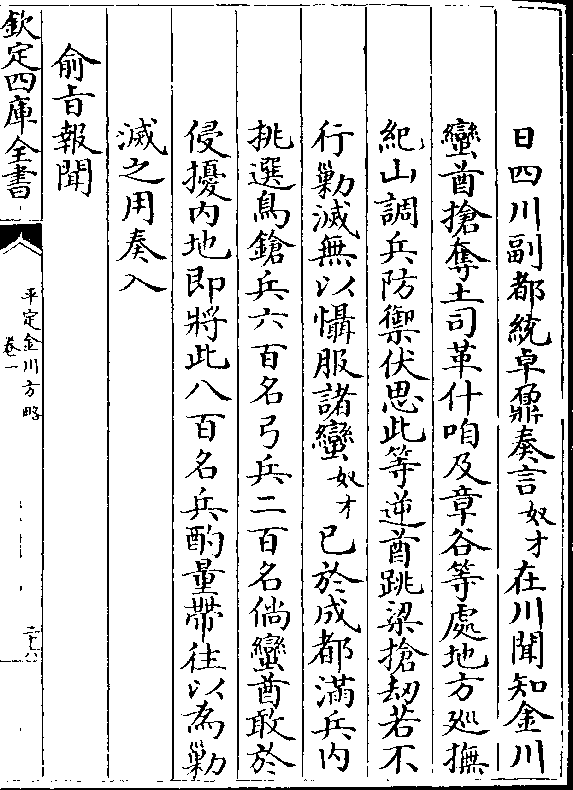 日四川副都統卓鼐奏言奴才在川聞知金川
蠻酋搶奪土司革什咱及章谷等處地方廵撫
紀山調兵防禦伏思此等逆酋跳梁搶刼若不
行勦滅無以懾服諸蠻奴才已於成都滿兵内
挑選鳥鎗兵六百名弓兵二百名倘蠻酋敢於
侵擾内地即將此八百名兵酌量帶往以為勦
滅之用奏入
俞旨報聞
欽定四庫全書
平定金川方略
卷一
二十六